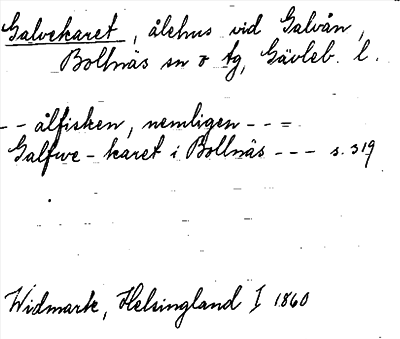 Galvekaret, ålehus vid Galvån,
Bollnäs sn o tg, Gävleb. l.
-- ålfisken, nemligen - - =
Galfwe-karet i Bollnäs --- s. 319
Widmark, Helsingland I 1860